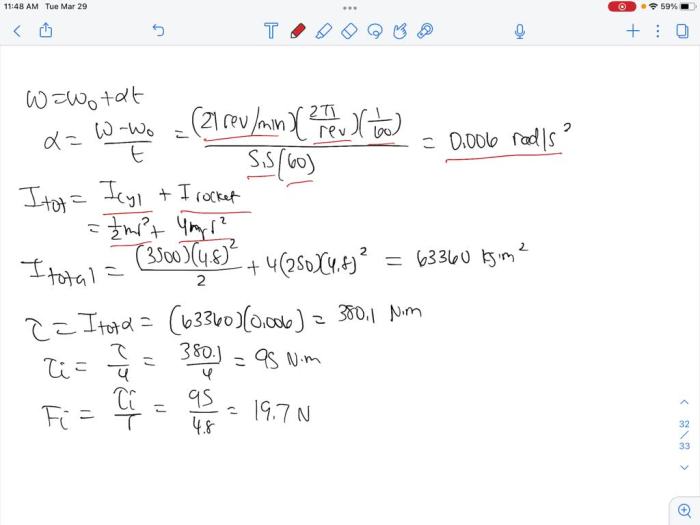 11:48 AM Tue Mar 29
59%
ω = ω₀ + αt
α = (ω - ω₀)/t = (21 rev/min)(2π/rev)(1/60) / 5.5(60) = 0.006 rad/s²
I tot = I cyl + I rocket
= ½mr² + 4m_r r²
I total = (3500)(4.8)²/2 + 4(250)(4.8)² = 63360 kg·m²
τ = I tot α = (63360)(0.006) = 380.1 N·m
τi = τ/4 = 380.1/4 = 95 N·m
Fi = τi/r = 95/4.8 = 19.7 N
32
/
33